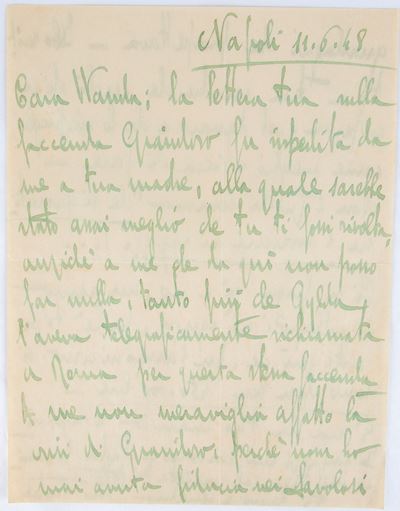 Napoli 11.6.48
Cara Wanda; la lettera tua sulla
faccenda fu spedita da
me a tua madre, alla quale sarebbe
stato assai meglio che tu ti fossi rivolta,
anziché a me che da qui non posso
far nulla, tanto più che Gylda
l'aveva telegraficamente richiamata
a Roma per questa stessa faccenda
A me non meraviglia affatto la
crisi di perché non ho
mai avuta fiducia nei